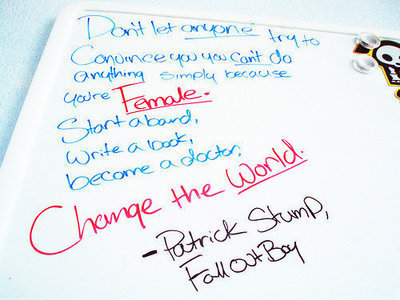 Don't let anyone try to
Convince you you can't do
anything simply because
you're Female.
Start a band,
Write a book,
become a doctor.
Change the World.
- Patrick Stump,
Fall Out Boy